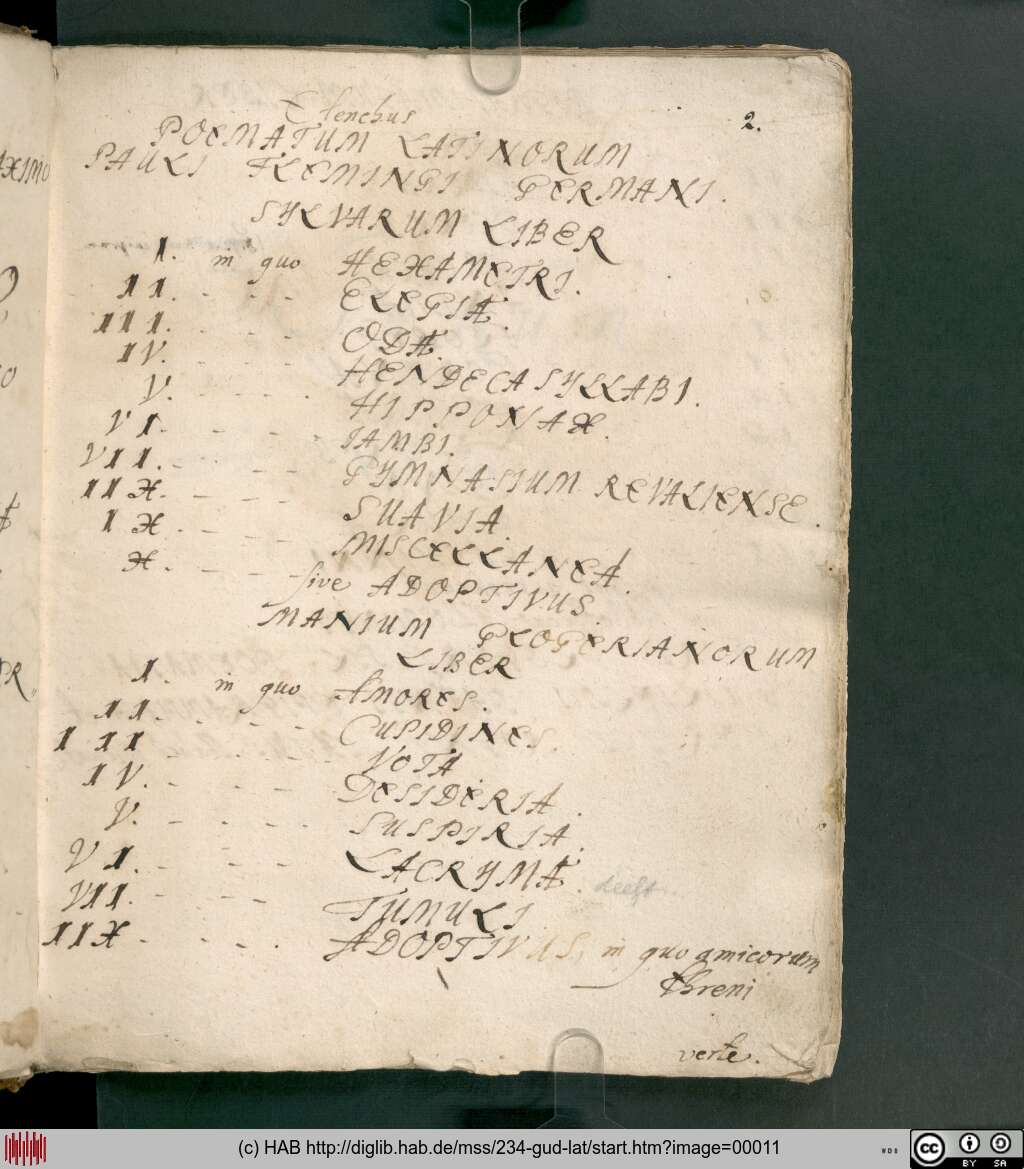 2.
Elenchus
POEMATUM LATINORUM
PAULI FLEMINGI GERMANI.
SYLVARUM LIBER
I. in quo HEXAMETRI.
II. - - - ELEGIÆ.
III. - - - ODÆ.
IV. - - - - HENDECASYLLABI.
V. - - - - - HIPPONAX.
VI. - - - - IAMBI.
VII. - - - - GYMNASIUM REVALIENSE.
IIX. - - - - SUAVIA.
IX. - - - - MISCELLANEA.
X. - - - - sive ADOPTIVUS.
MANIUM GLOGERIANORUM
LIBER
I. in quo AMORES.
II. - - - - CUPIDINES.
III. - - - - - VOTA.
IV. - - - - DESIDERIA.
V. - - - - SUSPIRIA.
VI. - - - - LACRYMÆ. deest.
VII. - - - - TUMULI
IIX - - - - ADOPTIVUS, in quo amicorum
threni
verte.
AXIMO
(c) HAB http://diglib.hab.de/mss/234-gud-lat/start.htm?image=00011
WDB
cc
BY SA